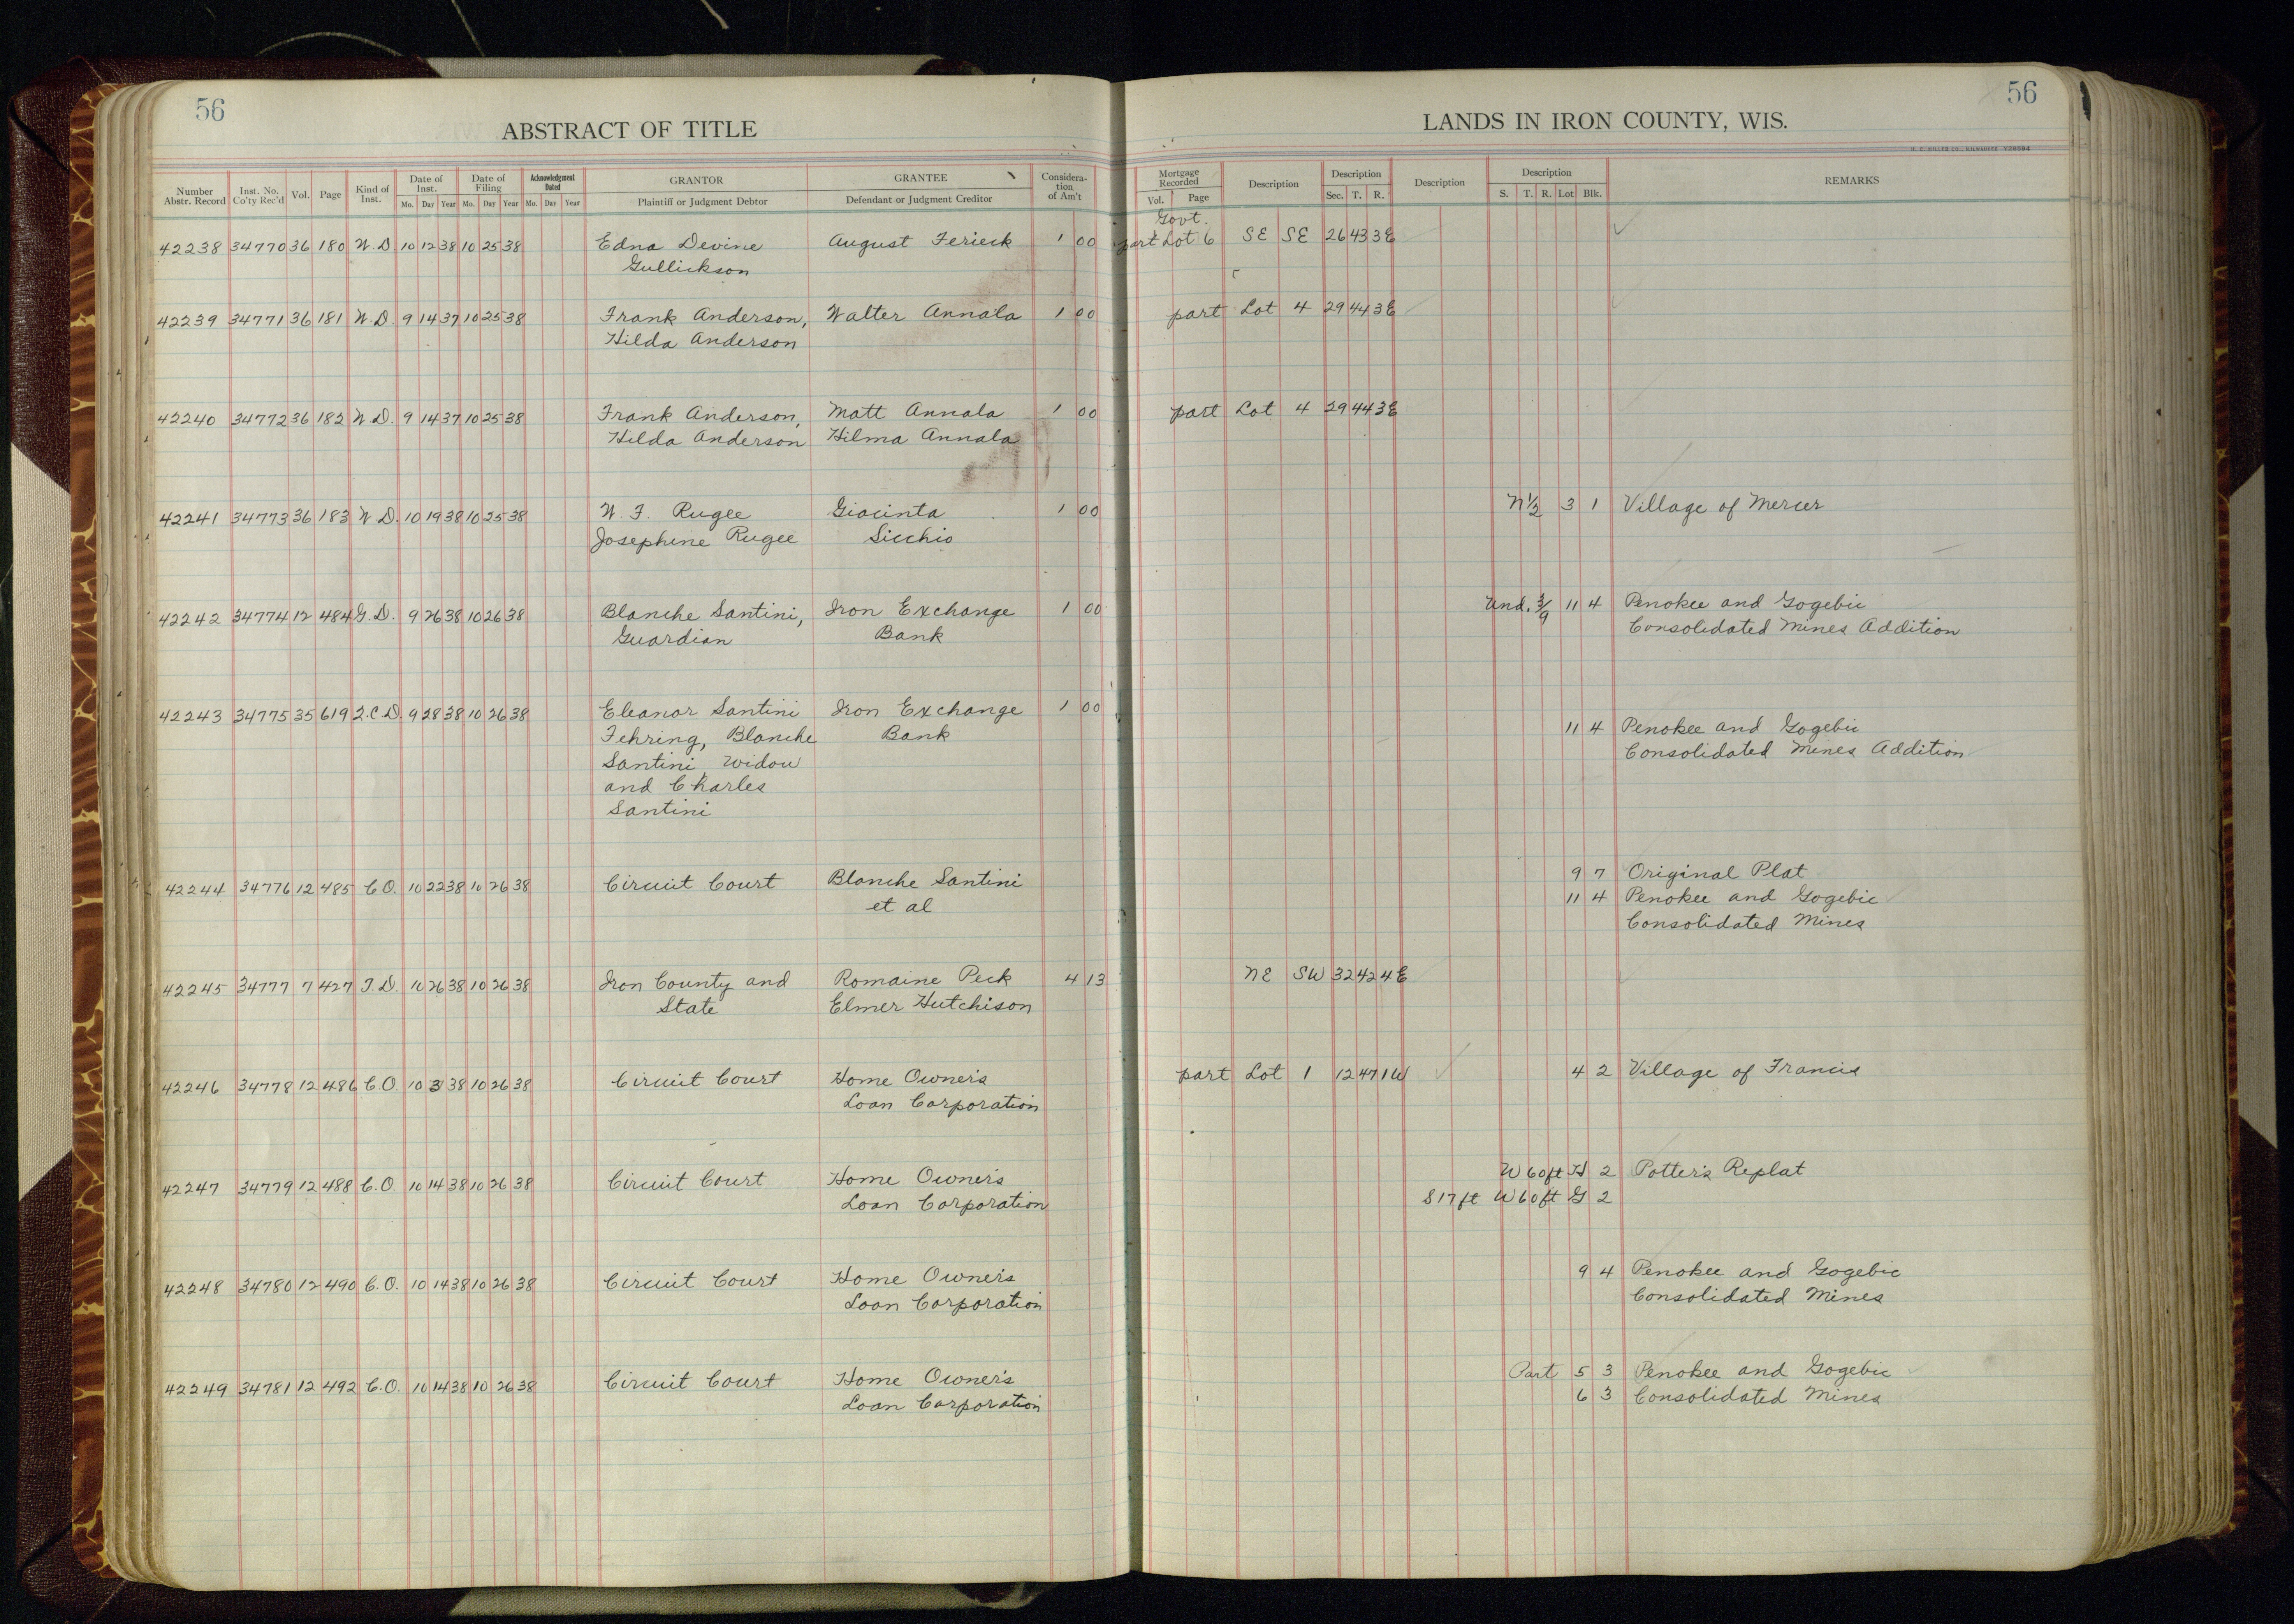 56
56
ABSTRACT OF TITLE
LANDS IN IRON COUNTY, WIS.
Number Abstr. Record Inst. No. Co'ty Rec'd Vol. Page Kind of Inst. Date of Inst. Mo. Day Year Date of Filing Mo. Day Year Acknowledgment Dated Mo. Day Year GRANTOR Plaintiff or Judgment Debtor GRANTEE Defendant or Judgment Creditor Consideration of Am't Mortgage Recorded Vol. Page Description Description Sec. T. R. Description Description S. T. R. Lot Blk. REMARKS
Govt.
42238 34770 36 180 W.D. 10 12 38 10 25 38 Edna Devine August Ferieck 1 00 part Lot 6 SE SE 26 43 3E
Gullickson
42239 34771 36 181 W.D. 9 14 37 10 25 38 Frank Anderson, Walter Annala 1 00 part Lot 4 29 44 3E
Hilda Anderson
42240 34772 36 182 W.D. 9 14 37 10 25 38 Frank Anderson, Matt Annala 1 00 part Lot 4 29 44 3E
Hilda Anderson Hilma Annala
42241 34773 36 183 W.D. 10 19 38 10 25 38 W. F. Rugee Giacinta 1 00 N½ 3 1 Village of Mercer
Josephine Rugee Sicchio
42242 34774 12 484 G.D. 9 26 38 10 26 38 Blanche Santini, Iron Exchange 1 00 Und. 3/9 11 4 Penokee and Gogebic
Guardian Bank Consolidated Mines Addition
42243 34775 35 619 Q.C.D. 9 28 38 10 26 38 Eleanor Santini Iron Exchange 1 00
Fehring, Blanche Bank 11 4 Penokee and Gogebic
Santini widow Consolidated Mines Addition
and Charles
Santini
42244 34776 12 485 C.O. 10 22 38 10 26 38 Circuit Court Blanche Santini 9 7 Original Plat
et al 11 4 Penokee and Gogebic
Consolidated Mines
42245 34777 7 427 T.D. 10 26 38 10 26 38 Iron County and Romaine Peck 4 13 NE SW 32 42 4E
State Elmer Hutchison
42246 34778 12 486 C.O. 10 3 38 10 26 38 Circuit Court Home Owner's part Lot 1 12 47 1W 4 2 Village of Francis
Loan Corporation
42247 34779 12 488 C.O. 10 14 38 10 26 38 Circuit Court Home Owner's W 60 ft H 2 Potter's Replat
Loan Corporation S 17 ft W 60 ft G 2
42248 34780 12 490 C.O. 10 14 38 10 26 38 Circuit Court Home Owner's 9 4 Penokee and Gogebic
Loan Corporation Consolidated Mines
42249 34781 12 492 C.O. 10 14 38 10 26 38 Circuit Court Home Owner's Part 5 3 Penokee and Gogebic
Loan Corporation 6 3 Consolidated Mines